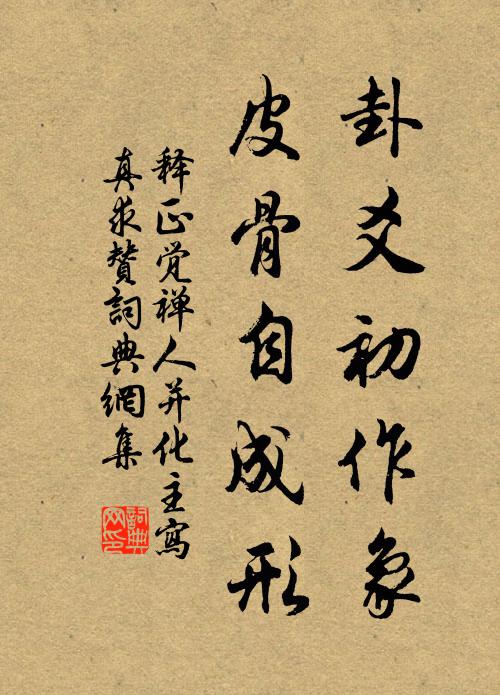 卦爻初作象
皮骨自成形
释正觉禅人并化主寫
真求贊詞典網集
詞典
网印